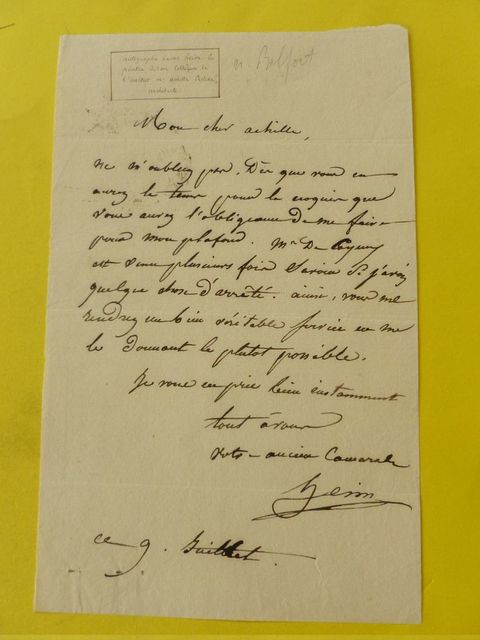 autographe de mr heim le
peintre à son collègue de
l'institut mr achille Leclère
architecte
n. Belfort
Mon cher achille,
ne m'oubliez pas. Dès que vous en
aurez le tems pour le croquis que
vous aurez l'obligeance de me faire
pour mon plafond. Mr De Cayeux
est venu plusieurs fois savoir si j'avais
quelque chose d'arrêté. ainsi, vous me
rendrez un bien véritable service en me
le donnant le plutot possible.
Je vous en prie bien instamment
tout à vous
votre ancien Camarade
heim
ce 9. Juillet.